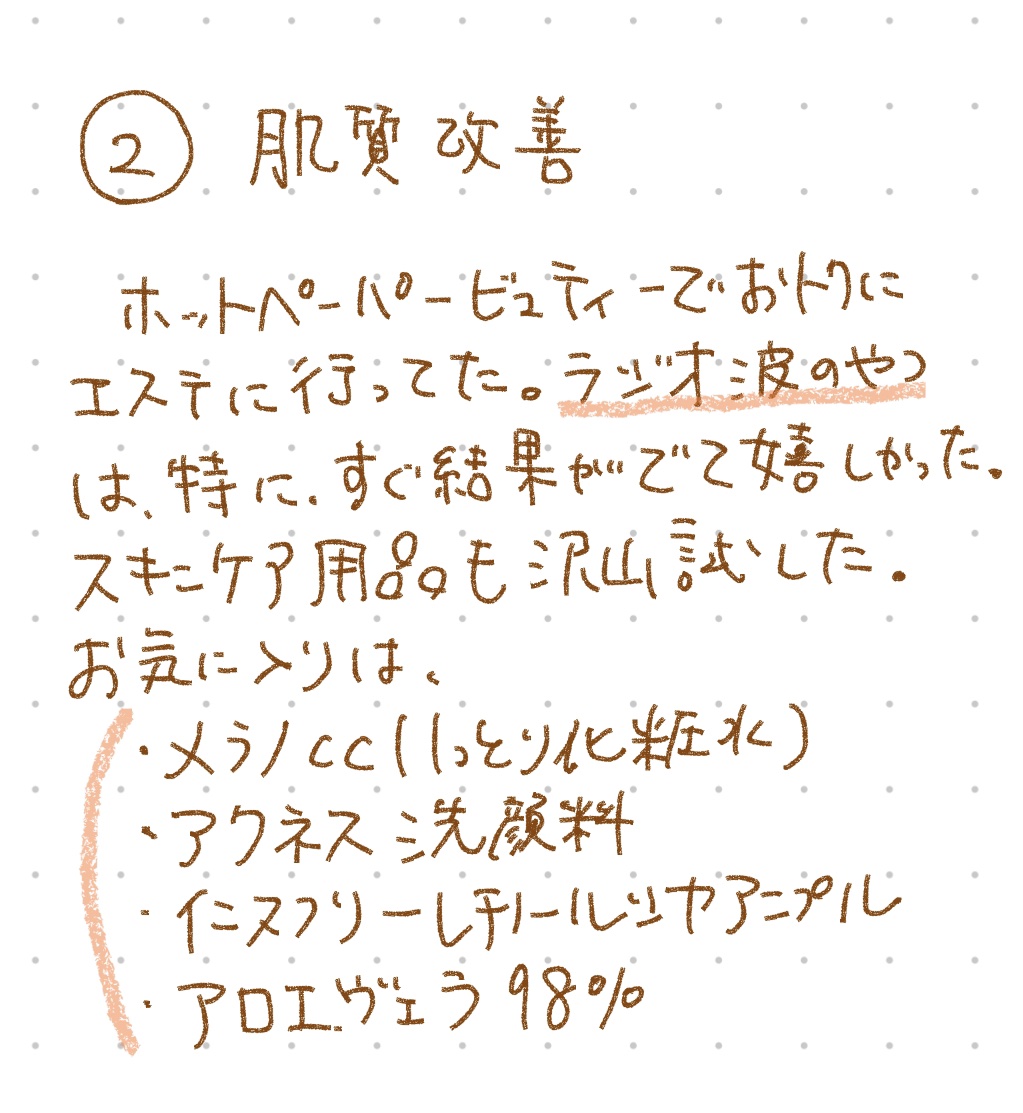 ② 肌質改善
ホットペーパービューティーでおトクに
エステに行ってた。ラジオ波のやつ
は、特に、すぐ結果がでて嬉しかった。
スキンケア用品も沢山試した。
お気に入りは、
・メラノCC(しっとり化粧水)
・アクネス洗顔料
・イニスフリーレチノールシカアンプル
・アロエヴェラ98%